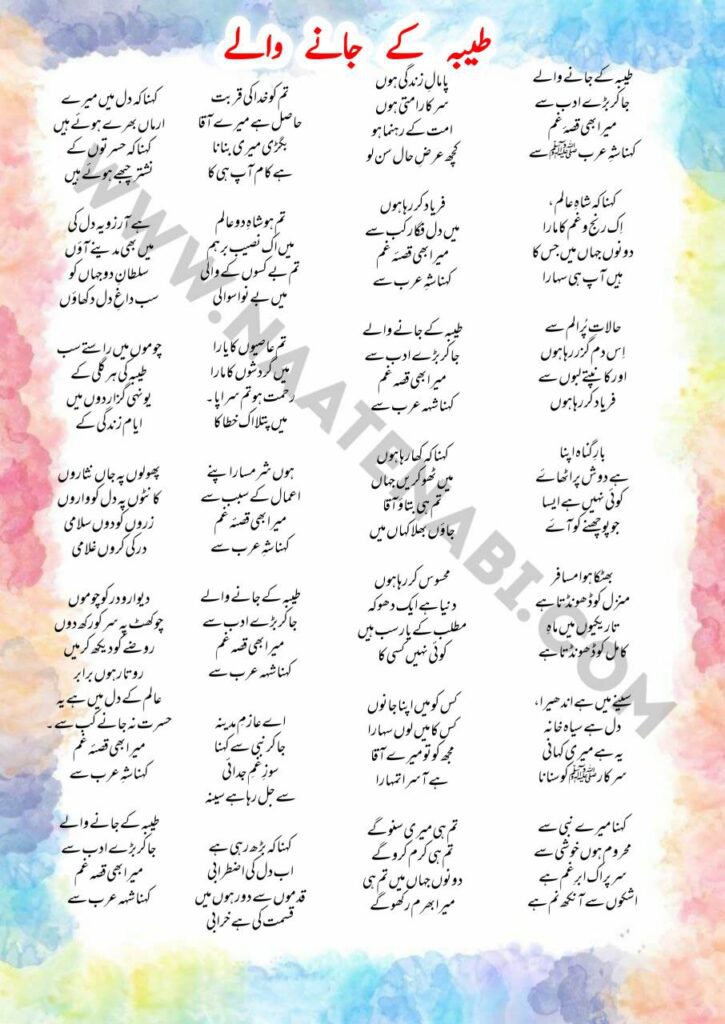 طیبہ کے جانے والے
طیبہ کے جانے والے
جا کر بڑے ادب سے
میرا بھی قصۂ غم
کہنا شہِ عرب ﷺ سے
کہنا کہ شاہِ عالم،
اِک رنج و غم کا مارا
دونوں جہاں میں جس کا
ہیں آپ ہی سہارا
حالاتِ پُر الم سے
اِس دم گزر رہا ہوں
اور کانپتے لبوں سے
فریاد کر رہا ہوں
بارِ گناہ اپنا
ہے دوش پر اٹھائے
کوئی نہیں ہے ایسا
جو پوچھنے کو آئے
بھٹکا ہوا مسافر
منزل کو ڈھونڈتا ہے
تاریکیوں میں ماہِ
کامل کو ڈھونڈتا ہے
سینے میں ہے اندھیرا،
دل ہے سیاہ خانہ
یہ ہے میری کہانی
سرکار ﷺ کو سنانا
کہنا میرے نبی سے
محروم ہوں خوشی سے
سر پر اک ابرِ غم ہے
اشکوں سے آنکھ نم ہے
پامالِ زندگی ہوں
سرکار امتی ہوں
امت کے رہنما ہو
کچھ عرضِ حال سن لو
فریاد کر رہا ہوں
میں دل فگار کب سے
میرا بھی قصۂ غم
کہنا شہِ عرب سے
طیبہ کے جانے والے
جا کر بڑے ادب سے
میرا بھی قصہ غم
کہنا شہہ عرب سے
کہنا کہ کھا رہا ہوں
میں ٹھوکریں جہاں میں
تم ہی بتاؤ آقا
جاؤں بھلا کہاں میں
محسوس کر رہا ہوں
دنیا ہے ایک دھوکہ
مطلب کے یار سب ہیں
کوئی نہیں کسی کا
کس کو میں اپنا جانوں
کس کا میں لوں سہارا
مجھ کو تو میرے آقا
ہے آسرا تمہارا
تم ہی میری سنو گے
تم ہی کرم کرو گے
دونوں جہاں میں تم ہی
میرا بھرم رکھو گے
تم کو خدا کی قربت
حاصل ہے میرے آقا
بگڑی میری بنانا
ہے کام آپ ہی کا
تم ہو شاہِ دو عالم
میں اک نصیبِ برہم
تم بے کسوں کے والی
میں بے نوا سوالی
تم عاصیوں کا یارا
میں گردشوں کا مارا
رحمت ہو تم سراپا۔
میں پتلا اک خطا کا
ہوں شرمسار اپنے
اعمال کے سبب سے
میرا بھی قصۂ غم
کہنا شہِ عرب سے
طیبہ کے جانے والے
جا کر بڑے ادب سے
میرا بھی قصہ غم
کہنا شہہ عرب سے
اے عازمِ مدینہ
جا کر نبی سے کہنا
سوزِ غمِ جدائی
سے جل رہا ہے سینہ
کہنا کہ بڑھ رہی ہے
اب دل کی اضطرابی
قدموں سے دور ہوں میں
قسمت کی ہے خرابی
کہنا کہ دل میں میرے
ارماں بھرے ہوئے ہیں
کہنا کہ حسرتوں کے
نشتر چبھے ہوئے ہیں
ہے آرزو یہ دل کی
میں بھی مدینے آؤں
سلطانِ دو جہاں کو
سب داغِ دل دکھاؤں
چوموں میں راستے سب
طیبہ کی ہر گلی کے
یونہی گزار دوں میں
ایام زندگی کے
پھولوں پہ جاں نثاروں
کانٹوں پہ دل کو واروں
زروں کو دوں سلامی
در کی کروں غلامی
دیوار و در کو چوموں
چوکھٹ پہ سر کو رکھ دوں
روضے کو دیکھ کر میں
روتا رہوں برابر
عالم کے دل میں ہے یہ
حسرت نہ جانے کب سے۔
میرا بھی قصۂ غم
کہنا شہِ عرب سے
طیبہ کے جانے والے
جا کر بڑے ادب سے
میرا بھی قصہ غم
کہنا شہہ عرب سے
WWW.NAATENABI.COM